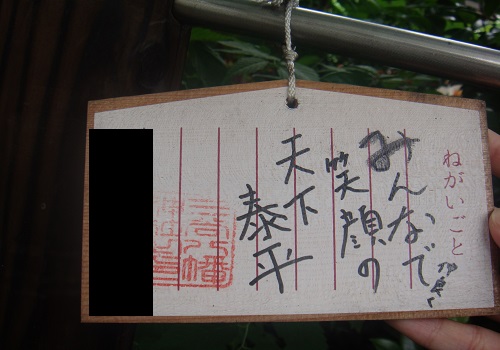 ねがいごと
みんなで
仲良く
笑顔の
天下
泰平